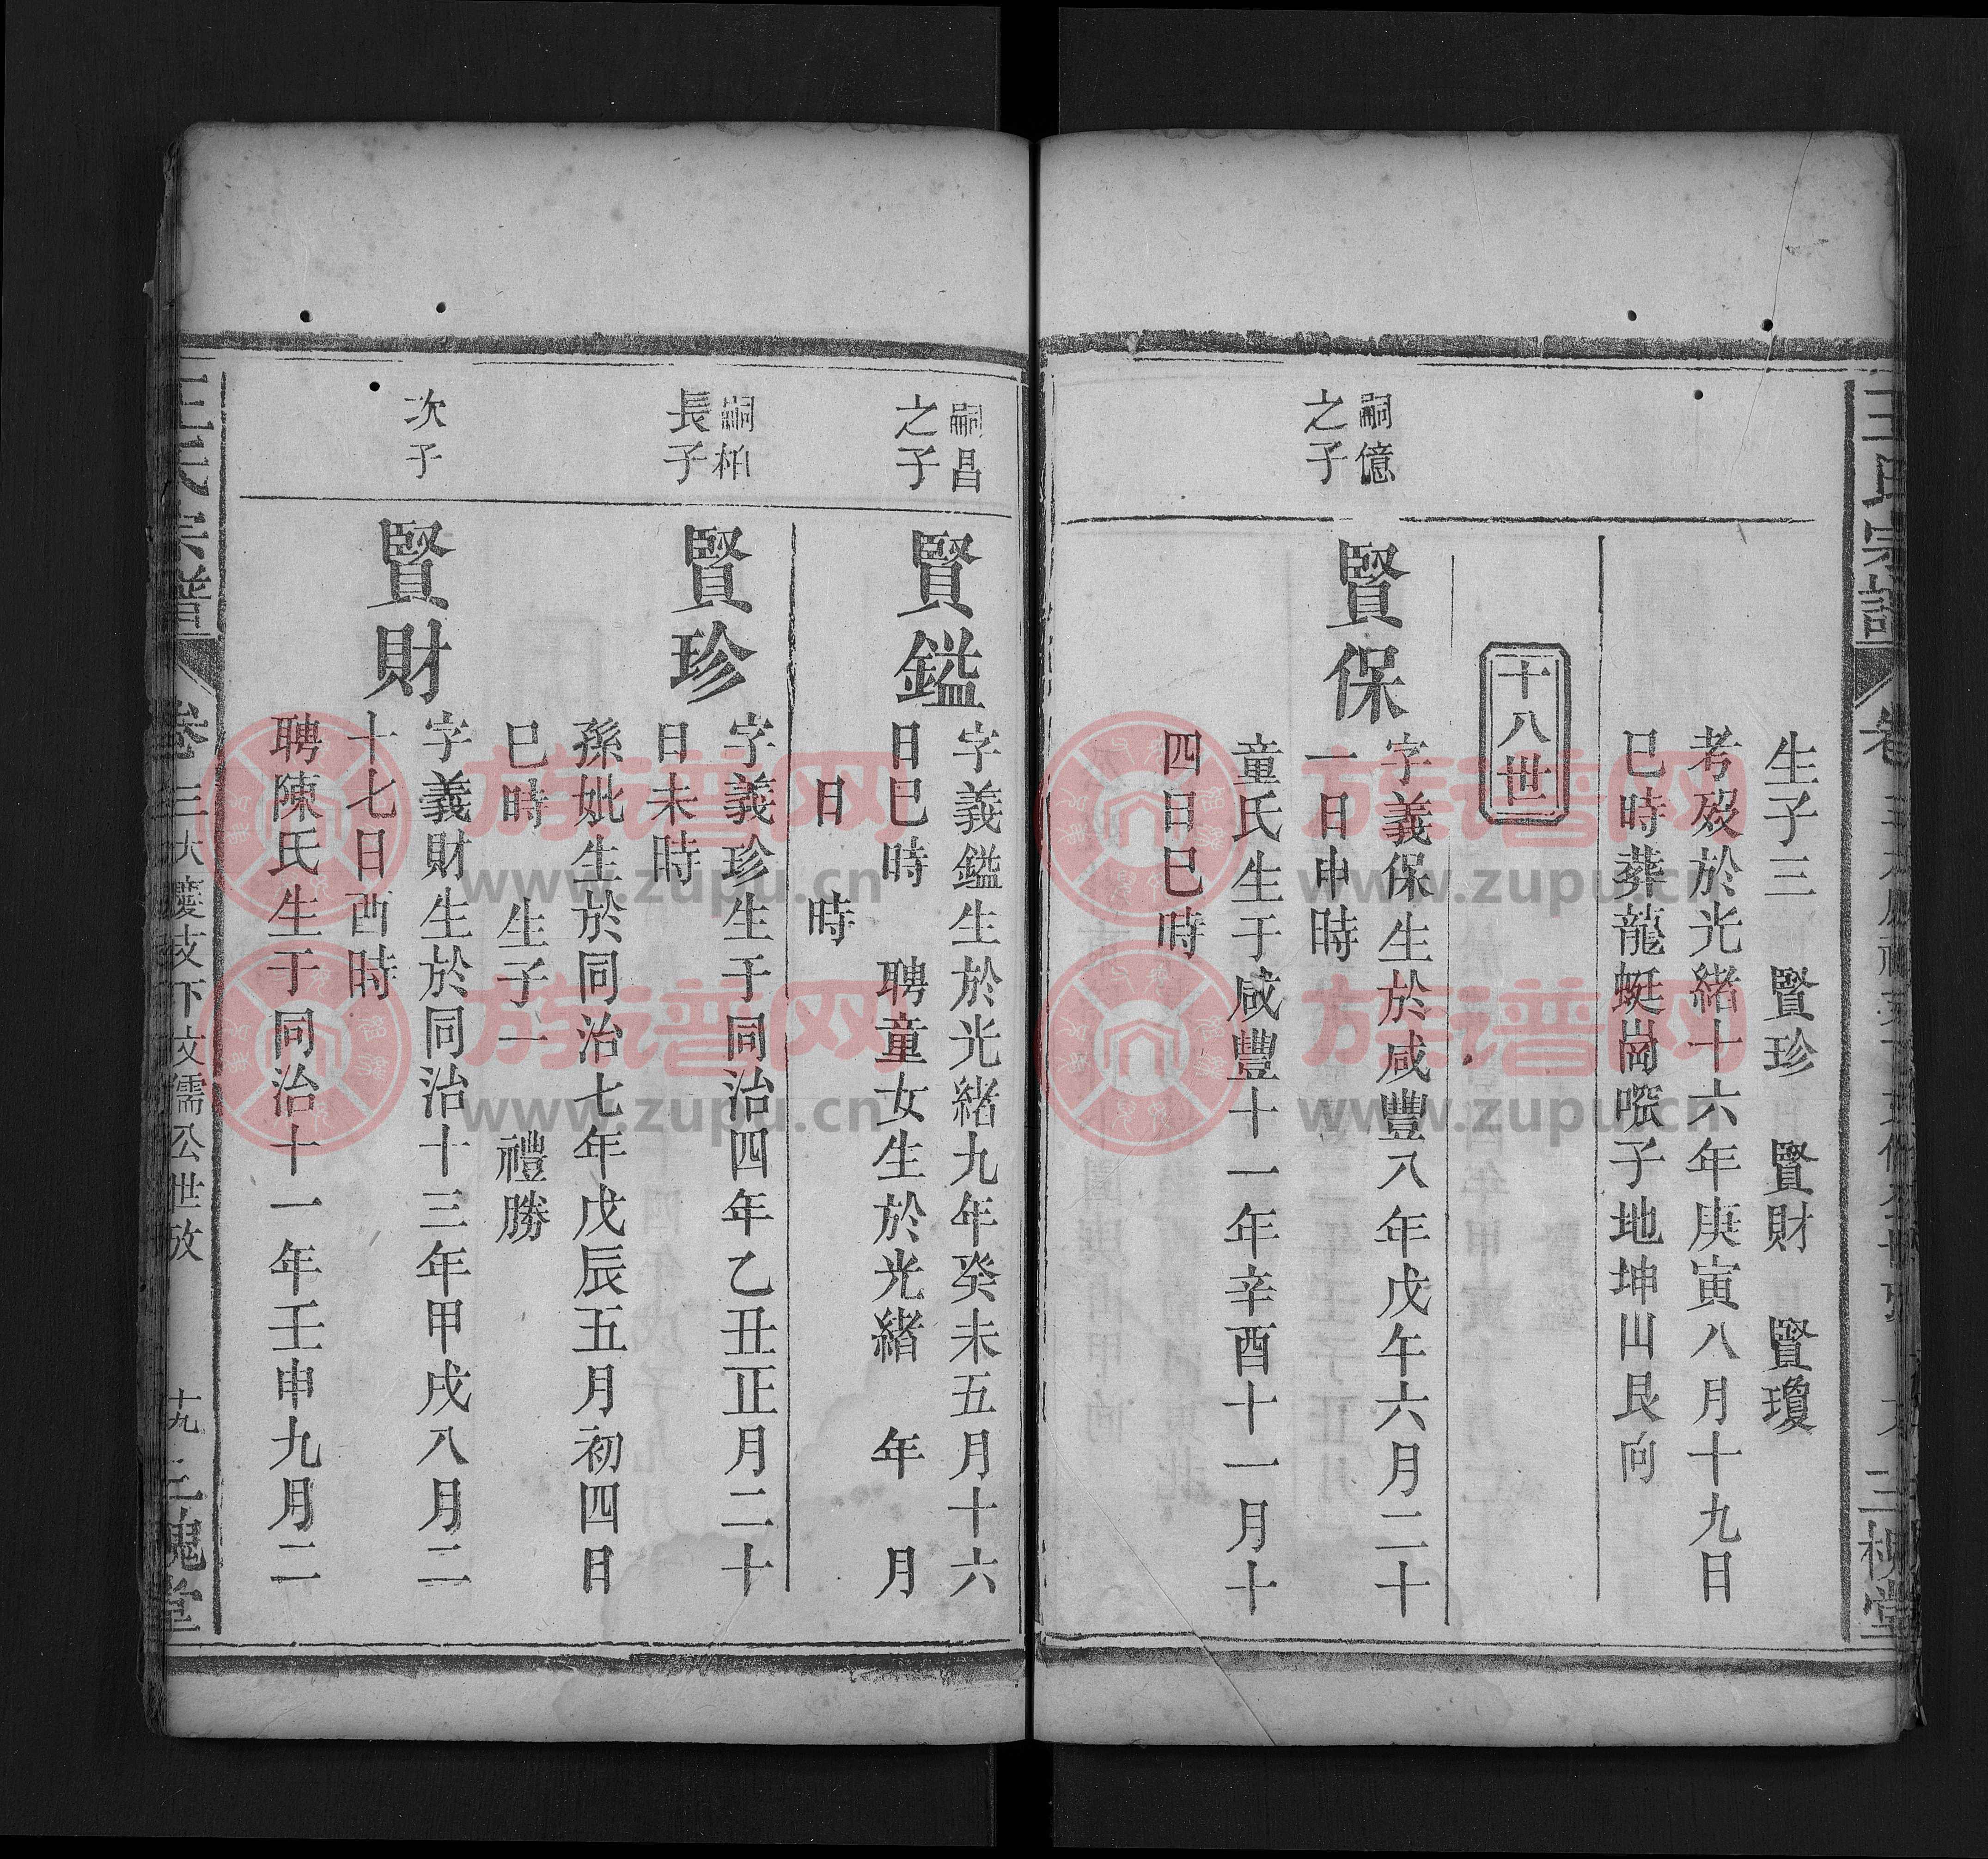 王氏宗譜
卷
三槐堂
生子三　賢珍　賢財　賢瓊
考歿於光緒十六年庚寅八月十九日
巳時葬龍蜓崗㗲子地坤山艮向
十八世
嗣億
之子
賢保
字義保生於咸豐八年戊午六月二十
一日申時
童氏生于咸豐十一年辛酉十一月十
四日巳時
嗣昌
之子
賢鎰
字義鎰生於光緒九年癸未五月十六
日巳時　聘童女生於光緒　年　月
日　時
嗣柏
長子
賢珍
字義珍生于同治四年乙丑正月二十
日未時
孫妣生於同治七年戊辰五月初四日
巳時　生子一　禮勝
次子
賢財
字義財生於同治十三年甲戌八月二
十七日酉時
聘陳氏生于同治十一年壬申九月二
王氏宗譜
卷三大慶支下文儒公世放
十九
三槐堂
族谱网
www.zupu.cn
族谱网
www.zupu.cn
族谱网
www.zupu.cn
族谱网
www.zupu.cn